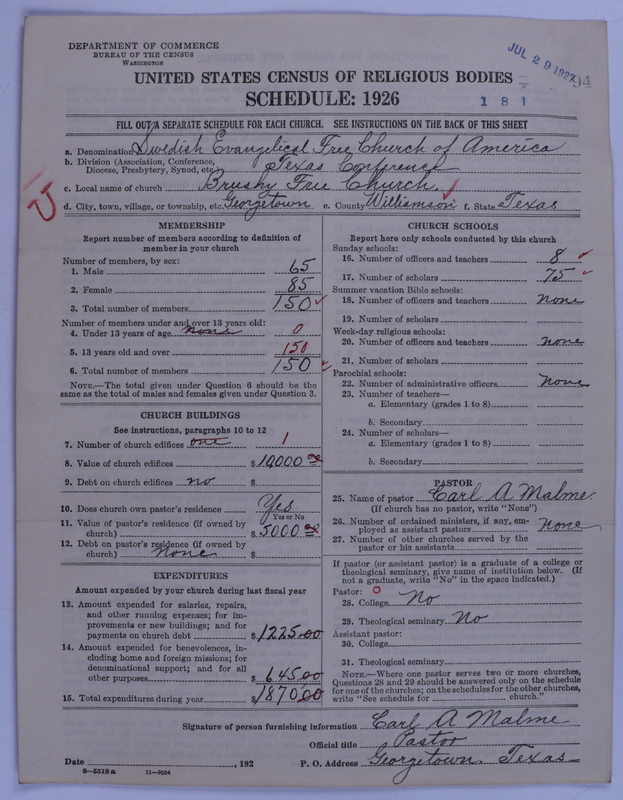 DEPARTMENT OF COMMERCE
BUREAU OF THE CENSUS
WASHINGTON
JUL 29 1927
94
UNITED STATES CENSUS OF RELIGIOUS BODIES
SCHEDULE: 1926
181
FILL OUT A SEPARATE SCHEDULE FOR EACH CHURCH. SEE INSTRUCTIONS ON THE BACK OF THIS SHEET
a. Denomination Swedish Evangelical Free Church of America
b. Division (Association, Conference, Diocese, Presbytery, Synod, etc.) Texas Conference
c. Local name of church Brushy Free Church.
d. City, town, village, or township, etc. Georgetown. e. County Williamson f. State Texas
MEMBERSHIP
Report number of members according to definition of
member in your church
Number of members, by sex:
1. Male 65
2. Female 85
3. Total number of members 150
Number of members under and over 13 years old:
4. Under 13 years of age none 0
5. 13 years old and over 150
6. Total number of members 150
NOTE.—The total given under Question 6 should be the
same as the total of males and females given under Question 3.
CHURCH BUILDINGS
See instructions, paragraphs 10 to 12
7. Number of church edifices one 1
8. Value of church edifices $10000
9. Debt on church edifices no $
10. Does church own pastor's residence Yes
Yes or No
11. Value of pastor's residence (if owned by
church) $5000
12. Debt on pastor's residence (if owned by
church) None $
EXPENDITURES
Amount expended by your church during last fiscal year
13. Amount expended for salaries, repairs,
and other running expenses; for im-
provements or new buildings; and for
payments on church debt $1225.00
14. Amount expended for benevolences, in-
cluding home and foreign missions; for
denominational support; and for all
other purposes $645.00
15. Total expenditures during year $1870.00
CHURCH SCHOOLS
Report here only schools conducted by this church
Sunday schools:
16. Number of officers and teachers 8
17. Number of scholars 75
Summer vacation Bible schools:
18. Number of officers and teachers none
19. Number of scholars
Week-day religious schools:
20. Number of officers and teachers none
21. Number of scholars
Parochial schools:
22. Number of administrative officers none
23. Number of teachers—
a. Elementary (grades 1 to 8)
b. Secondary
24. Number of scholars—
a. Elementary (grades 1 to 8)
b. Secondary
PASTOR
25. Name of pastor Carl A Malme.
(If church has no pastor, write "None")
26. Number of ordained ministers, if any, em-
ployed as assistant pastors None
27. Number of other churches served by the
pastor or his assistants
If pastor (or assistant pastor) is a graduate of a college or
theological seminary, give name of institution below. (If
not a graduate, write "No" in the space indicated.)
Pastor: 0
28. College No
29. Theological seminary No
Assistant pastor:
30. College
31. Theological seminary
NOTE.—Where one pastor serves two or more churches,
Questions 28 and 29 should be answered only on the schedule
for one of the churches; on the schedules for the other churches,
write "See schedule for church."
Signature of person furnishing information Carl A Malme
Official title Pastor
Date , 192 P. O. Address Georgetown. Texas
8-5518a 11-9054